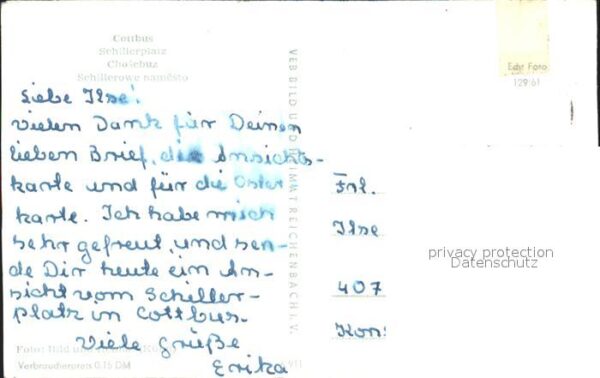 Cottbus
Schillerplatz
Chośebuz
Schillerowe naměsto
Liebe Ilse!
vielen Dank für Deinen
lieben Brief, die Ansichts-
karte und für die Oster
karte. Ich habe mich
sehr gefreut, und sen-
de Dir heute ein An-
sicht vom Schiller-
platz in Cottbus.
Viele Grüße
Erika
Foto: Bild und Heimat
Verbraucherpreis 0,15 DM
VEB BILD UND HEIMAT REICHENBACH I. V.
Echt Foto
129/61
Frl.
Ilse
407
Kon
privacy protection
Datenschutz